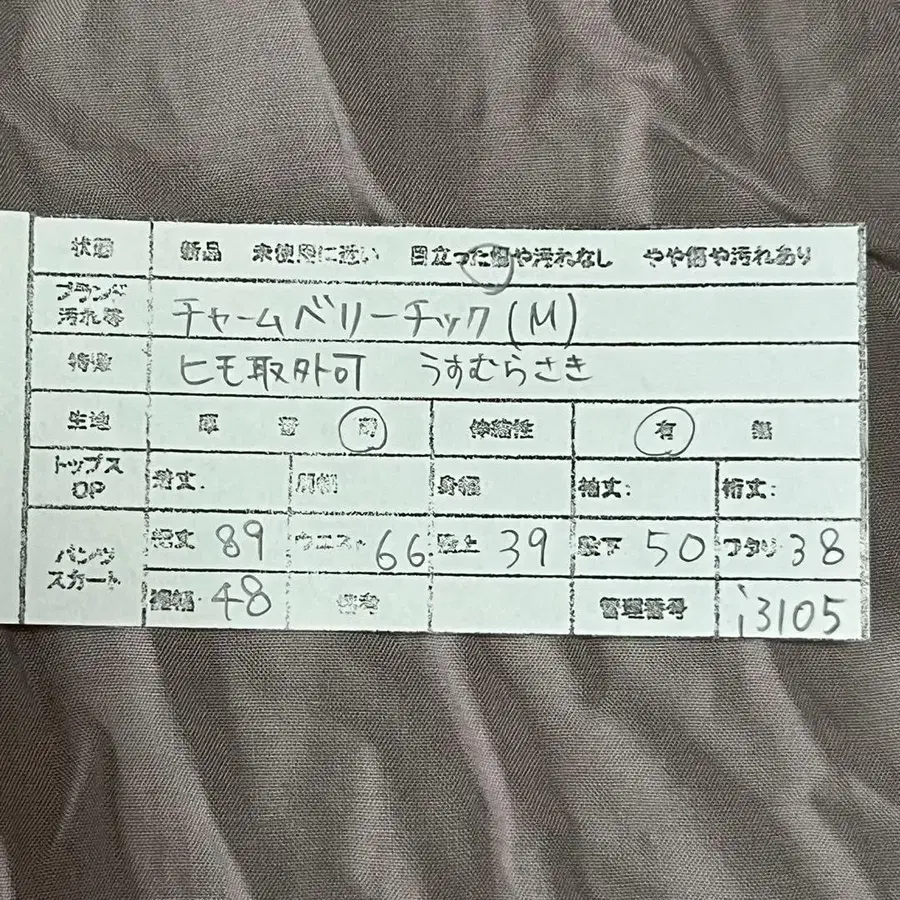 状態 新品 未使用に近い 目立った傷や汚れなし やや傷や汚れあり
ブランド 汚れ等 チャームベリーチック(M)
特徴 ヒモ取外可 うすむらさき
生地 厚 普 薄 伸縮性 有 無
トップス OP 着丈: 肩幅 身幅 袖丈: 裄丈:
パンツ スカート 総丈 89 ウエスト 66 股上 39 股下 50 ワタリ 38
裾幅 48 備考 管理番号 i3105